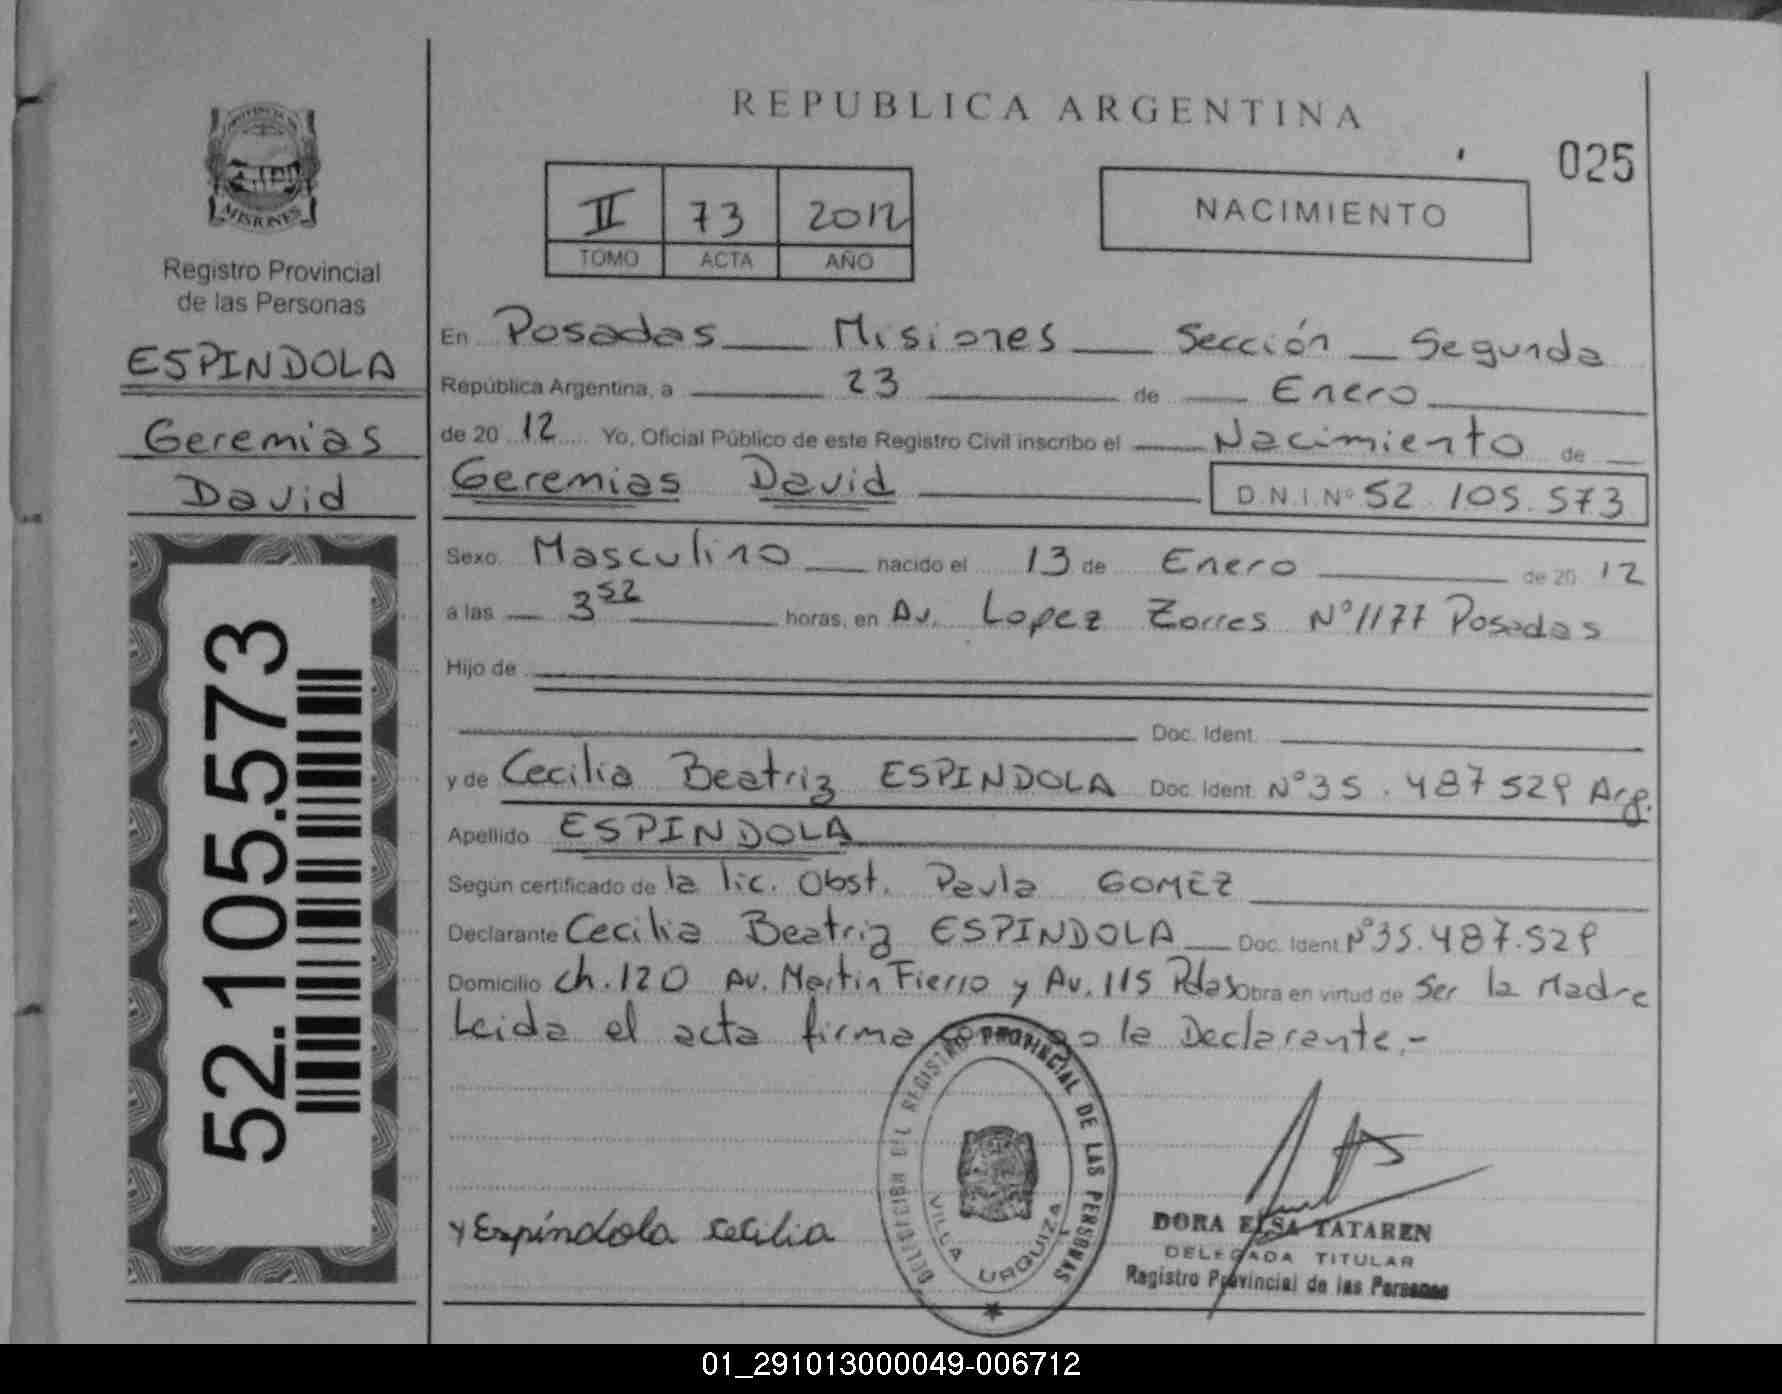 REPUBLICA ARGENTINA
025
PROVINCIA DE
MISIONES
Registro Provincial
de las Personas
ESPINDOLA
Geremias
David
52.105.573
II 73 2012
TOMO ACTA AÑO
NACIMIENTO
En Posadas Misiones Sección Segunda
República Argentina, a 23 de Enero
de 20 12 Yo, Oficial Público de este Registro Civil inscribo el Nacimiento de
Geremias David D.N.I. Nº 52.105.573
Sexo Masculino nacido el 13 de Enero de 20 12
a las 3 52 horas, en Av. Lopez Torres Nº 1177 Posadas
Hijo de
Doc. Ident.
y de Cecilia Beatriz ESPINDOLA Doc. Ident. Nº 35.487529 Arg.
Apellido ESPINDOLA
Según certificado de la lic. Obst. Paula GOMEZ
Declarante Cecilia Beatriz ESPINDOLA Doc. Ident Nº 35.487.529
Domicilio ch. 120 Av. Martin Fierro y Av. 115 Pdas Obra en virtud de Ser la Madre
Leida el acta firma la Declarante.-
DELEGACION DEL REGISTRO PROVINCIAL DE LAS PERSONAS
VILLA URQUIZA
Espíndola Cecilia
DORA ELSA TATAREN
DELEGADA TITULAR
Registro Provincial de las Personas
01_291013000049-006712